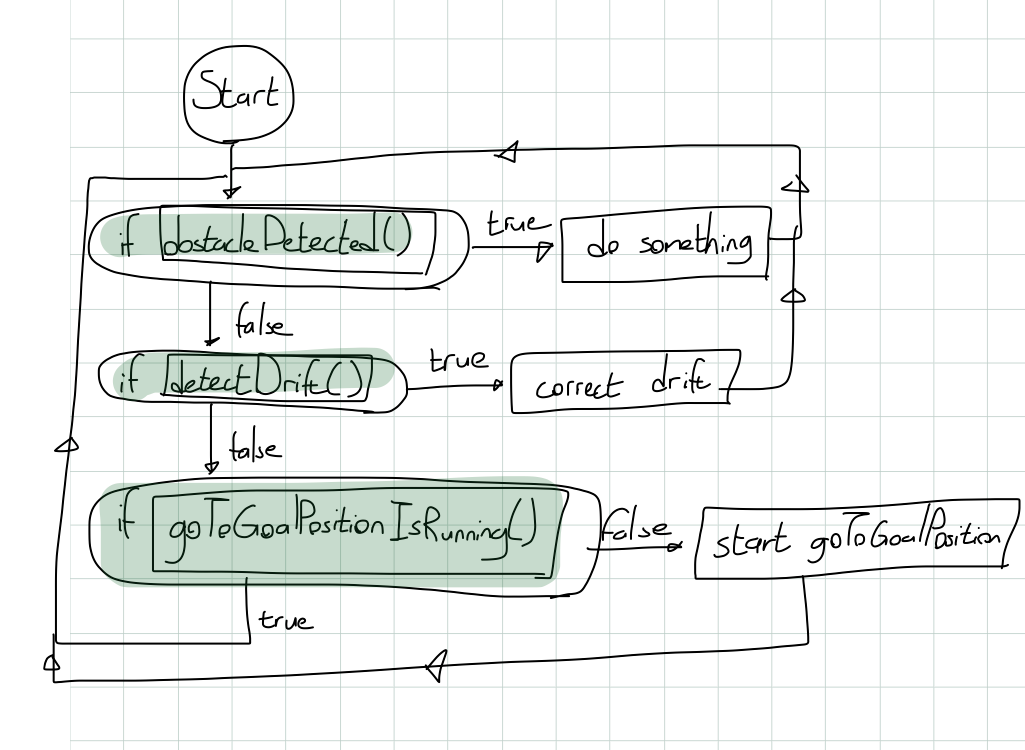 Start
if obstacleDetected()
true
do something
false
if detectDrift()
true
correct drift
false
if goToGoalPositionIsRunning()
false
start goToGoalPosition
true